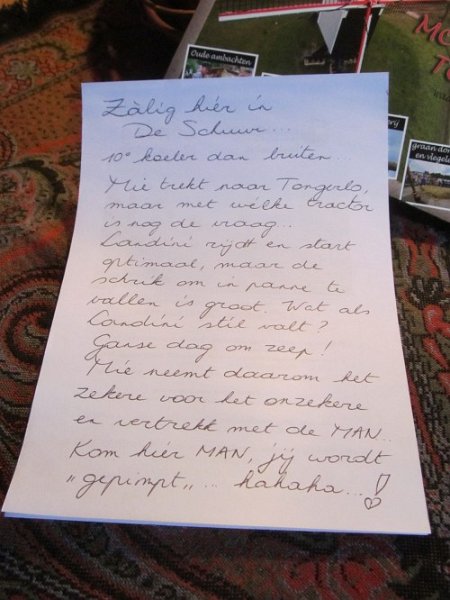 Oude ambachten
Mo
To
erij
graan do
en vlegele
Zàlig hiér in
De Schuur...
10° koeler dan buiten
Mie trekt naar Tongerlo,
maar met wélke tractor
is nog de vraag...
Landini rijdt en start
optimaal, maar de
schrik om in panne te
vallen is groot. Wat als
Landini stil valt?
Ganse dag om zeep!
Mie neemt daarom het
zekere voor het onzekere
en vertrekt met de MAN..
Kom hiér MAN, jij wordt
"gepimpt„... hahaha...! ♡